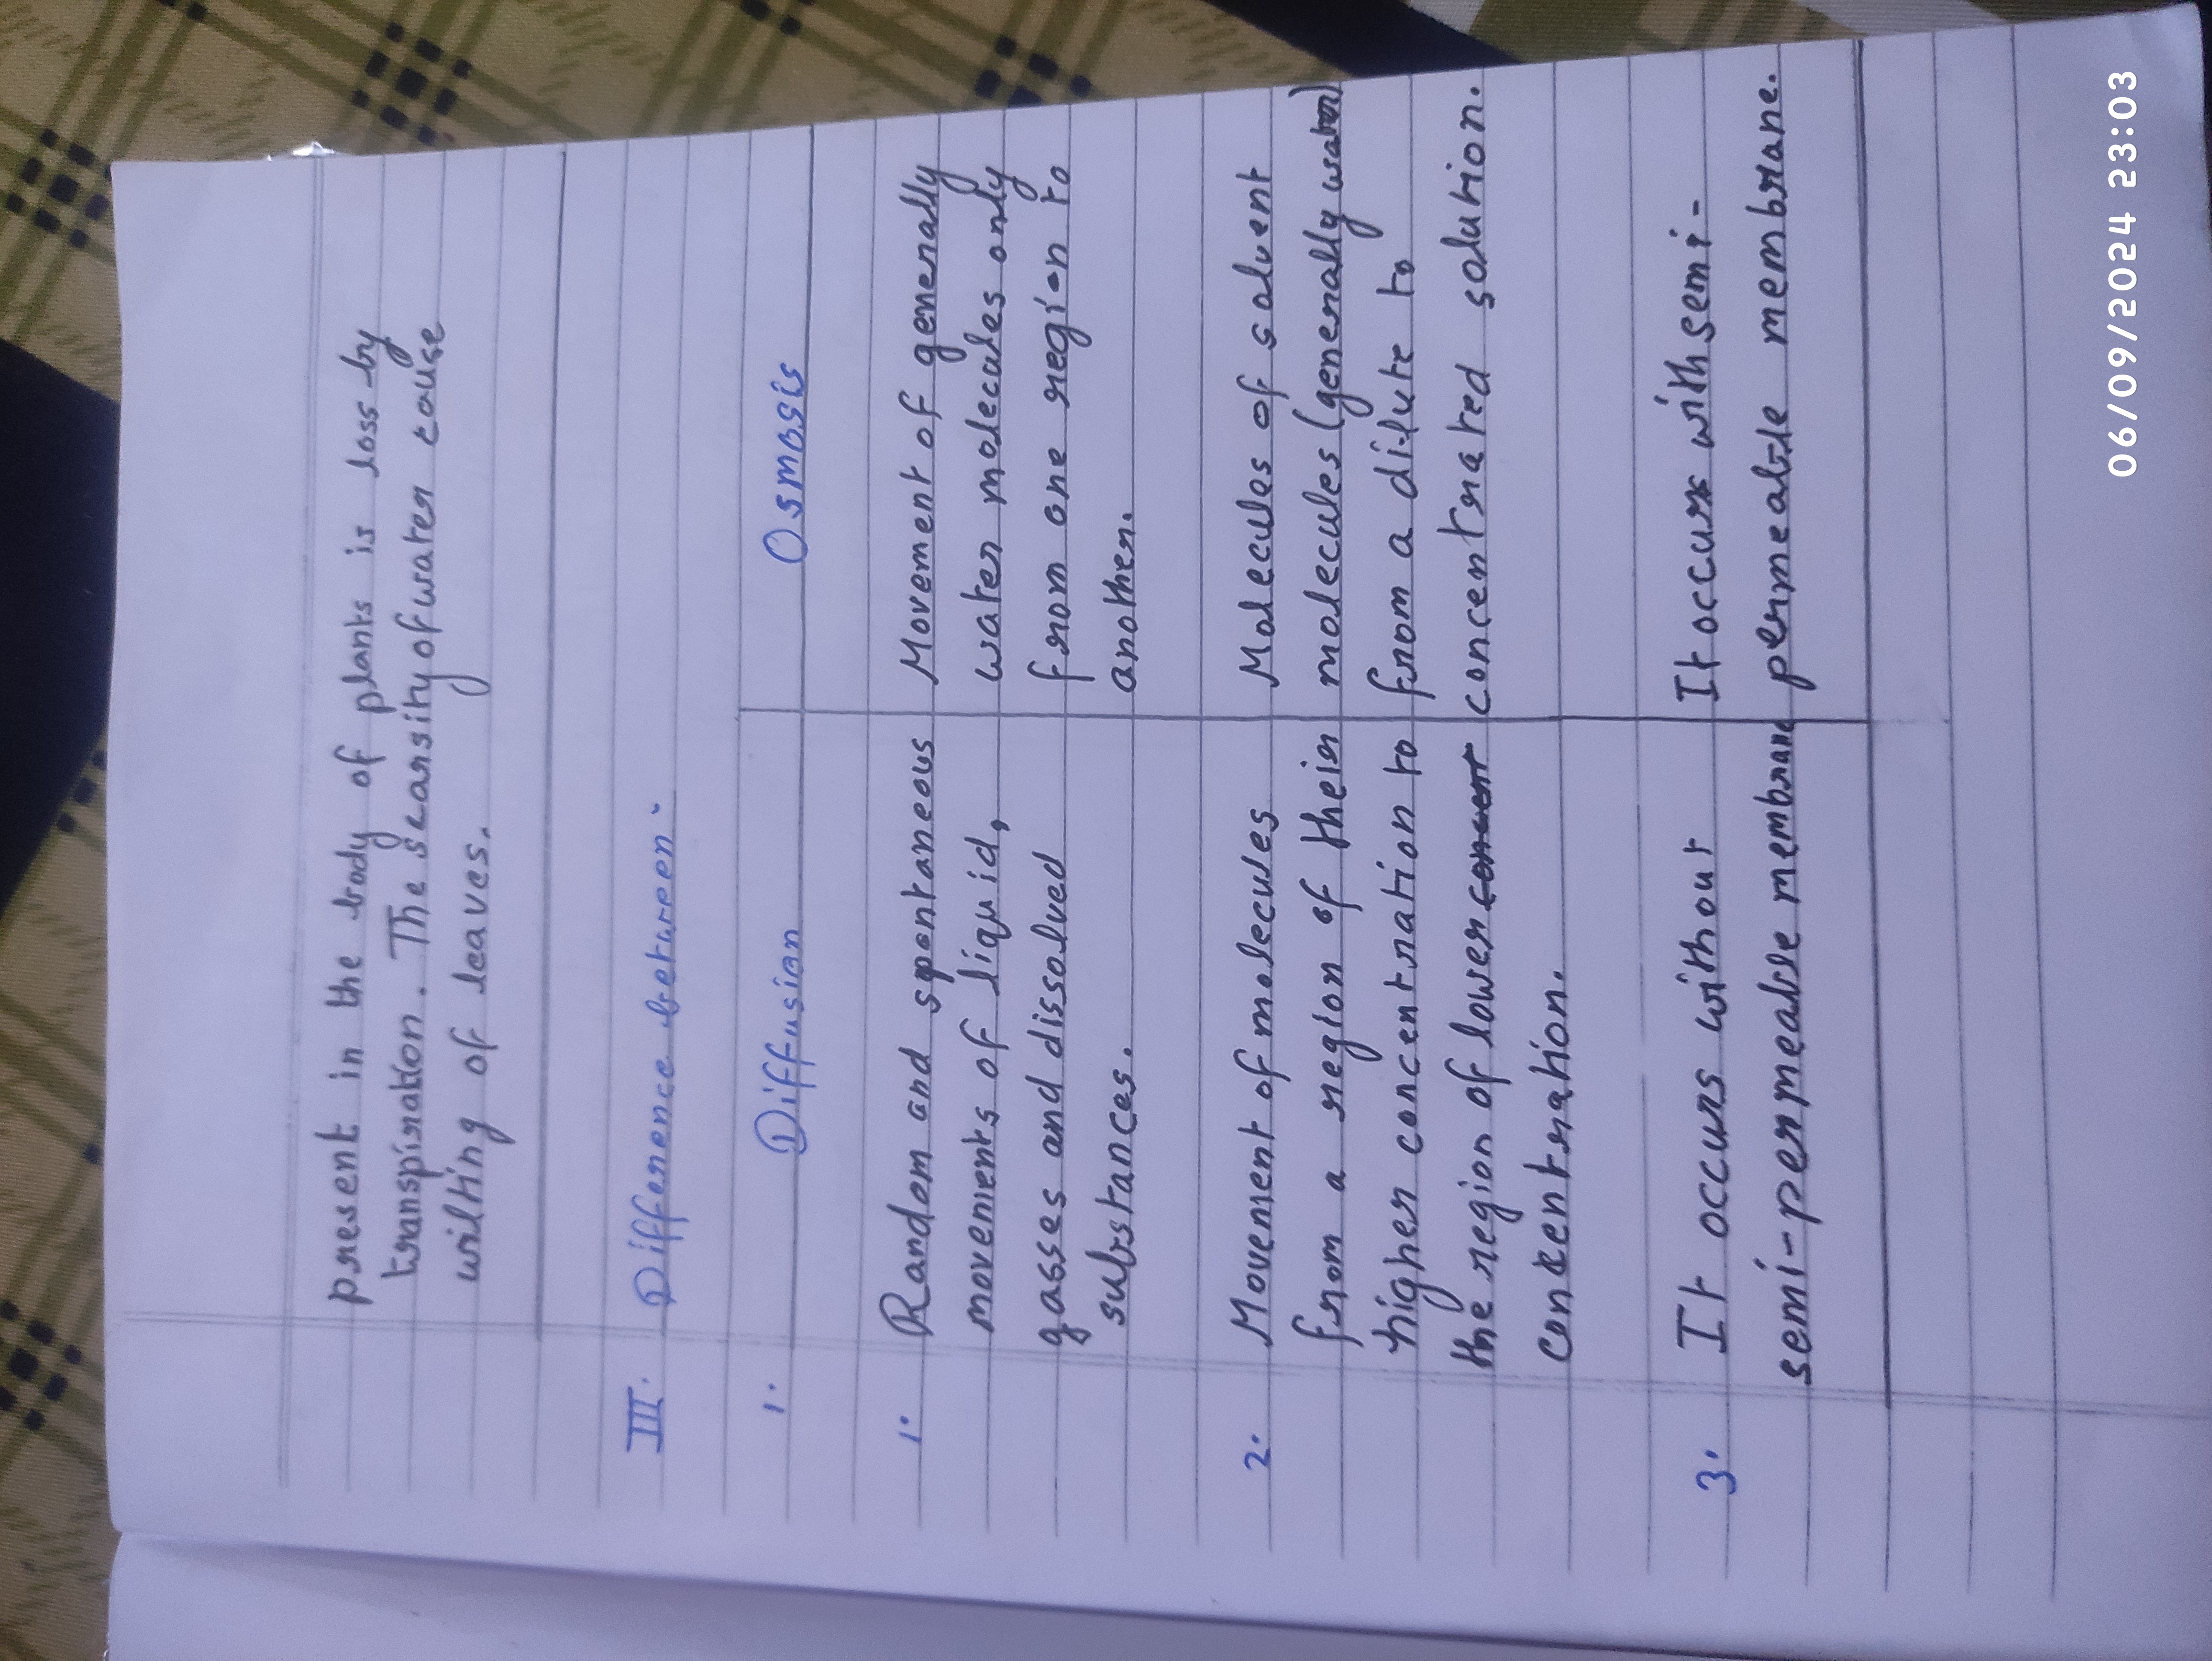 present in the body of plants is loss by
transpiration. The scarsity of water cause
wilting of leaves.
III. Difference between -
1. Diffusion Osmosis
1. Random and spontaneous
movements of liquid,
gasses and dissolved
substances.
Movement of generally
water molecules only
from one region to
another.
2. Movement of molecules
from a region of their
higher concentration to
the region of lower concent
concentration.
Molecules of solvent
molecules (generally water)
from a dilute to
concentrated solution.
3. It occurs without
semi-permeable membrane
It occurs with semi-
permeable membrane.
06/09/2024 23:03